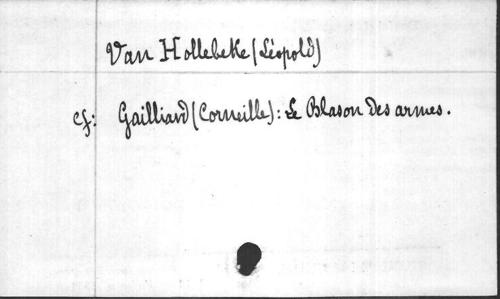 Van Hollebeke (Léopold)
cf: Gailliard (Corneille): Le Blason des armes.